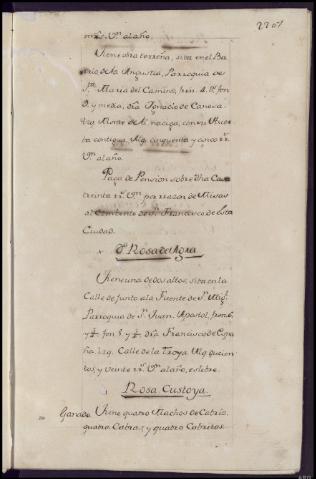 r.s V.on al año.
Tiene otra terreña, sita en el Ba
rrio de la Angustia, Parroquia de
S.ta Maria del Camino, frén. 4. v.s fon
9. y media, dra Ignacio de Caneva
Izq. Alvar de
ta contigua, Alq. cinquenta y cinco r.s
V.on al año.
Paga de Pension sobre dha Casa
treinta r.s V.on por razon de Misas
al Combento de S.n Francisco de esta
Ciudad.
D.a Rosa de Agra
Tiene una de dos altos, sita en la
Calle de junto a la Fuente de S.n Mig.l
Parroquia de S.n Juan Apostol, fron. 6.
y ½ fon 8. y ½ dra Francisco de
ña. izq. Calle de la Troya Alq. qucien
tos, y veinte r.s V.on al año, es libre.
Rosa Custoya.
Ganado Tiene quatro Machos de Cabrio,
quatro Cabras, y quatro Cabritos.